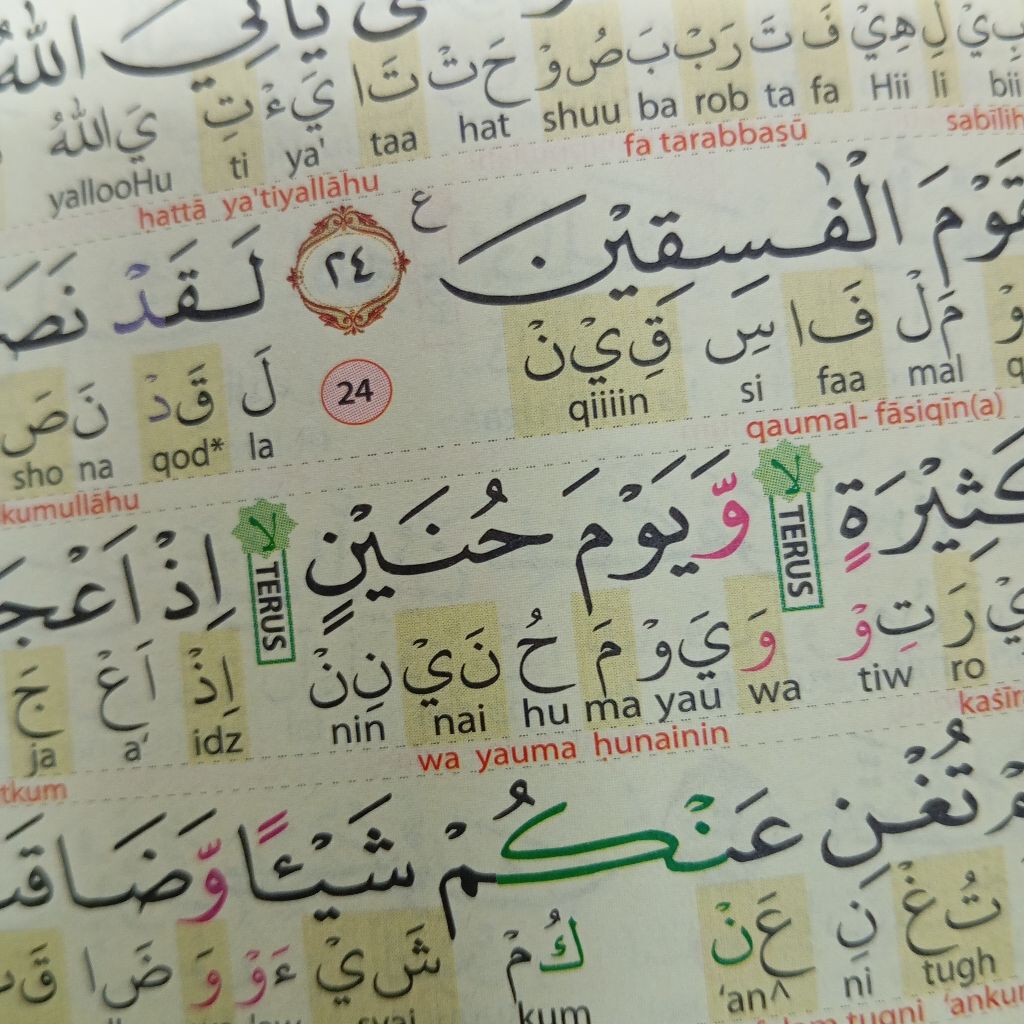 اللّٰهُ
بِيْ لِ هِيْ فَ تَ رَبْ بَ صُوْ حَتْ تَا يَءْ تِ يَ اللّٰهُ
bii li Hii fa ta rob ba shuu hat taa ya' ti yallooHu
fa tarabbaṣū ḥattā ya'tiyallāhu
الْفٰسِقِيْنَ ع ٢٤ لَقَدْ
مَلْ فَا سِ قِيْنْ 24 لَ قَدْ نَ صَ
mal faa si qiiiin la qod* na sho
qaumal- fāsiqīn(a)
كَثِيْرَةٍ لا TERUS وَّيَوْمَ حُنَيْنٍ لا TERUS اِذْ
رَ تِوْ وَ يَوْ مَ حُ نَيْ نِنْ اِذْ اَعْ جَ
ro tiw wa yau ma hu nai nin idz a' ja
wa yauma ḥunainin
تُغْنِ عَنْكُمْ شَيْـًٔا وَّضَاقَ
تُغْ نِ عَنْ كُمْ شَيْ ءَوْ وَ ضَا قَ
tugh ni 'an^ kum
tugni 'anku